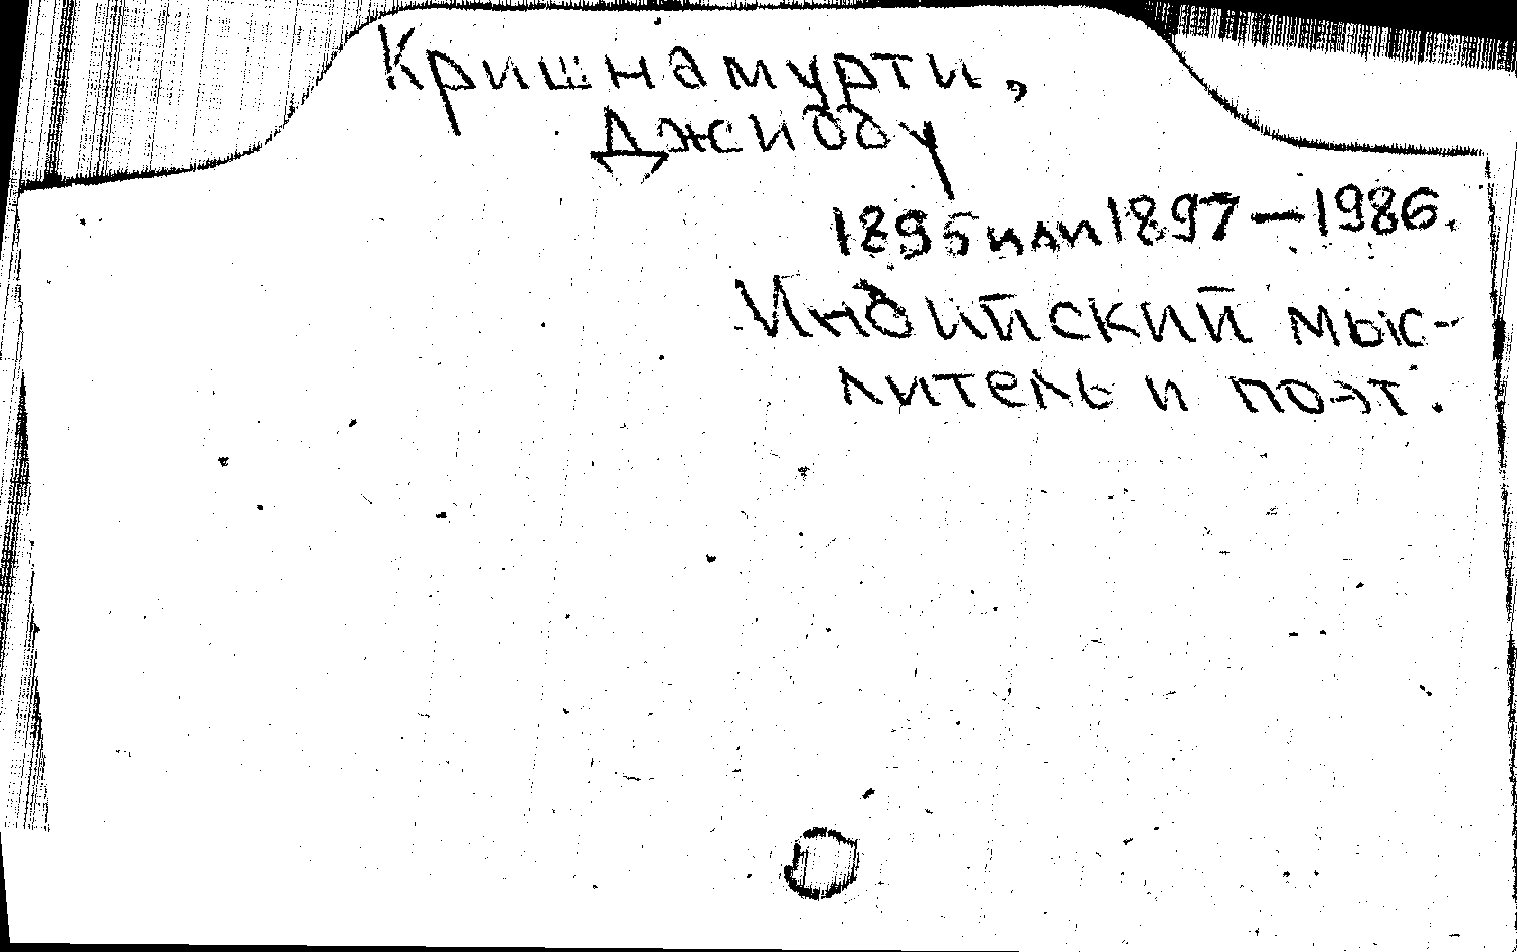 Кришнамурти,
Джидду
1895 или 1897 — 1986.
Индийский мыс-
литель и поэт.